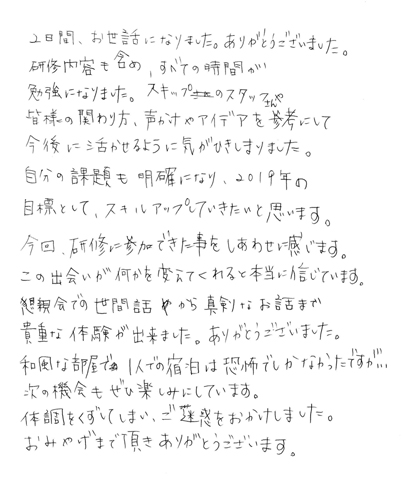 2日間、お世話になりました。ありがとうございました。
研修内容も含め、すべての時間が
勉強になりました。スキップのスタッフさんや
皆様の関わり方、声かけやアイデアを参考にして
今後に活かせるように気がひきしまりました。
自分の課題も明確になり、2019年の
目標として、スキルアップしていきたいと思います。
今回、研修に参加できた事をしあわせに感じます。
この出会いが何かを変えてくれると本当に信じています。
懇親会での世間話から真剣なお話まで
貴重な体験が出来ました。ありがとうございました。
和風な部屋で1人での宿泊は恐怖でしかなかったですが…
次の機会もぜひ楽しみにしています。
体調をくずしてしまい、ご迷惑をおかけしました。
おみやげまで頂きありがとうございます。